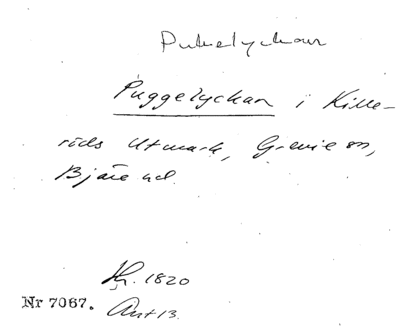 Pukelyckan
Puggelyckan i Kille-
röds Utmark, Grevie sn,
Bjäre hd.
Hr. 1820
Nr 7067. Ant 13.